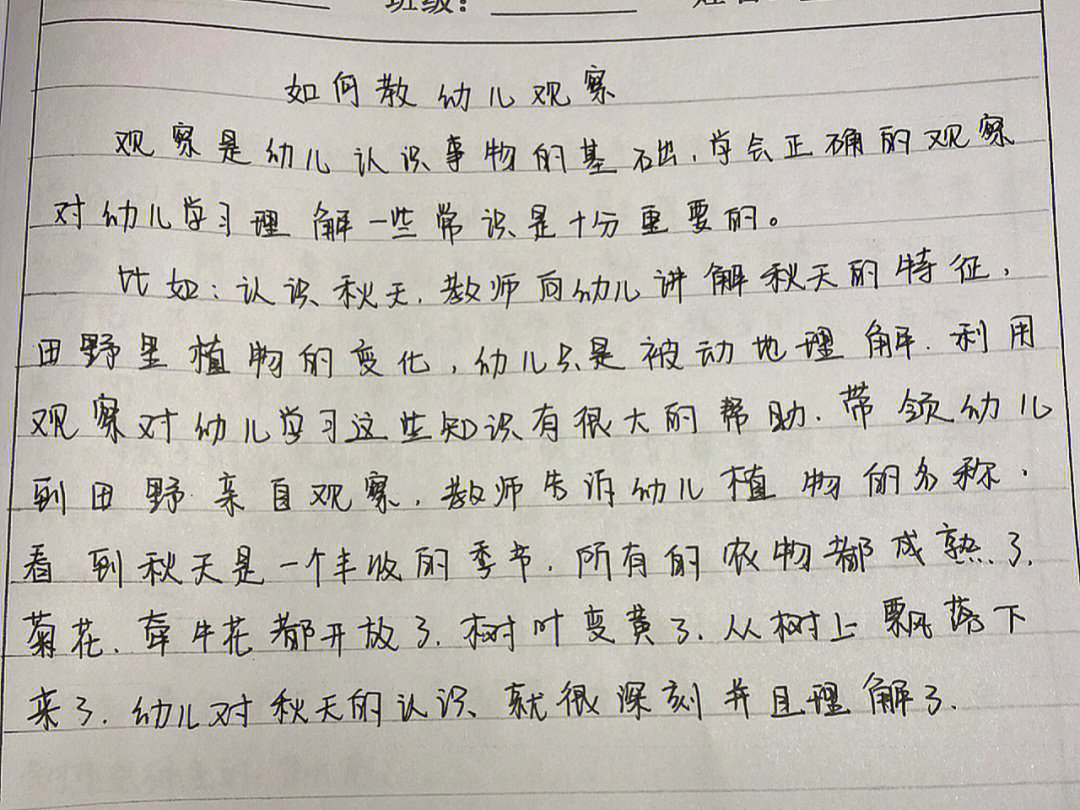 班级:
如何教幼儿观察
观察是幼儿认识事物的基础,学会正确的观察
对幼儿学习理解一些常识是十分重要的。
比如:认识秋天,教师向幼儿讲解秋天的特征,
田野里植物的变化,幼儿只是被动地理解.利用
观察对幼儿学习这些知识有很大的帮助.带领幼儿
到田野亲自观察,教师告诉幼儿植物的名称.
看到秋天是一个丰收的季节.所有的农物都成熟了.
菊花.牵牛花都开放了.树叶变黄了.从树上飘落下
来了.幼儿对秋天的认识就很深刻并且理解了.